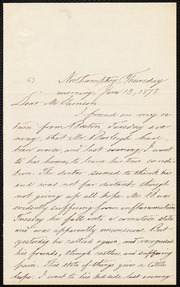 Northampton, Thursday
morning, Jan 13, 1873.
Dear Mr. Garrison,
I found on my re
turn from Boston, Tuesday eve
ning that Mr. had
been worse, and last evening I went
to his house, to learn his true condi
tion. The doctor seemed to think his
end was not far distant, though
not giving up all hope. Mr.
evidently suffering from inflammation
Tuesday he fell into a state
and was apparently unconscious. But
yesterday he rallied again, and recognized
his friends, though restless, and suffering
pain. This state of things gave a little
hope. I went to his bedside last evening